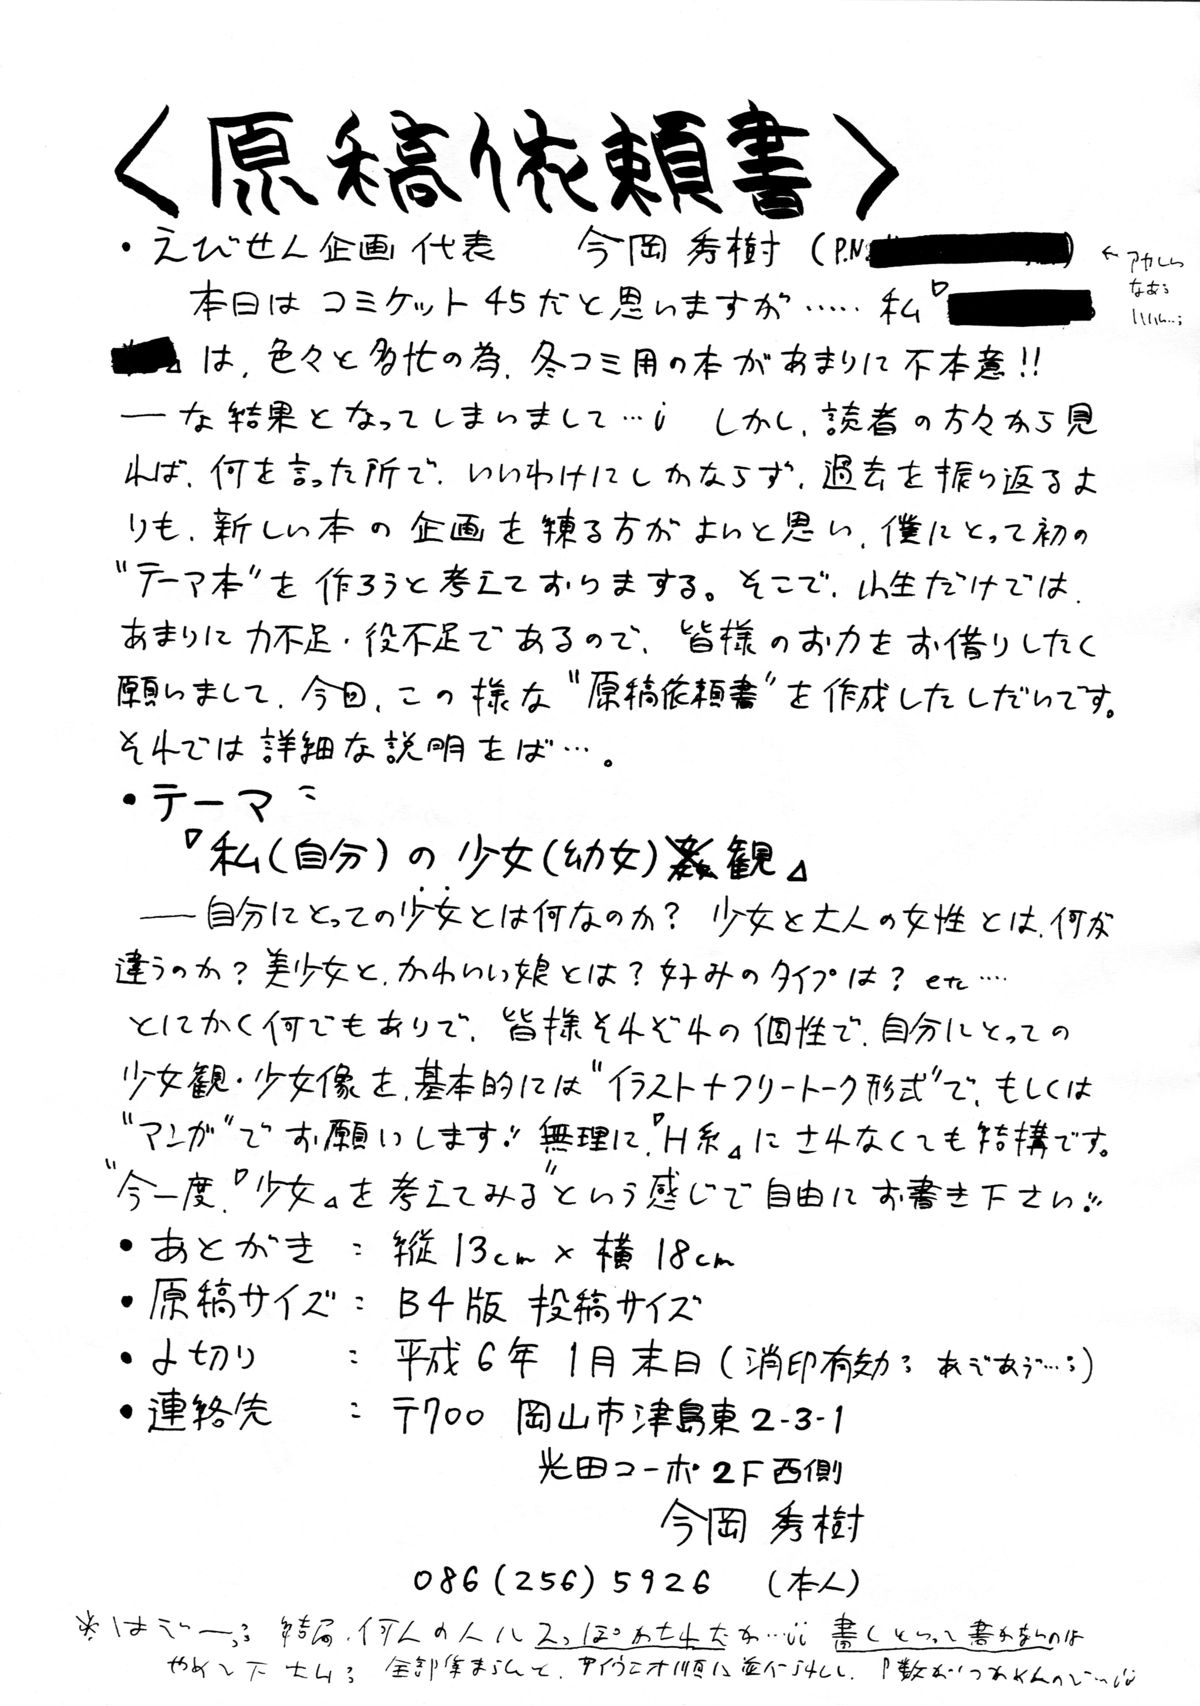 〈原稿依頼書〉
・えびせん企画 代表 今岡 秀樹 (P.N.
本日は コミケット45だと思いますが…… 私『
』は、色々と多忙の為、冬コミ用の本があまりに不本意!!
―な結果となってしまいまして…¡ しかし、読者の方々から見
れば、何を言った所で、いいわけにしかならず、過去を振り返るよ
りも、新しい本の企画を練る方がよいと思い、僕にとって初の
“テーマ本”を作ろうと考えておりまする。そこで、小生だけでは、
あまりに力不足・役不足であるので、皆様のお力をお借りしたく
願いまして、今回、この様な“原稿依頼書”を作成したしだいです。
それでは詳細な説明をば…。
・テーマ :
『私(自分)の少女(幼女)観』
―自分にとっての少女とは何なのか? 少女と大人の女性とは、何が
違うのか? 美少女と、かわいい娘とは? 好みのタイプは? etc……
とにかく何でもありで、皆様それぞれの個性で、自分にとっての
少女観・少女像を、基本的には“イラスト+フリートーク形式”で、もしくは
“マンガ”でお願いします!! 無理に『H系』にされなくても結構です。
“今一度、『少女』を考えてみる”という感じで自由にお書き下さい!!
・あとがき : 縦13cm×横18cm
・原稿サイズ : B4版 投稿サイズ
・〆切り : 平成6年1月末日(消印有効
・連絡先 : 〒700 岡山市津島東2-3-1
光田コーポ2F西側
今岡 秀樹
086(256)5926 (本人)
結局、何人の人にスっぽかされたか… 書くといって書かないのは
やめて下さい 全部集まらんと、アイウエオ順に並べられし、P数がつかめんので…